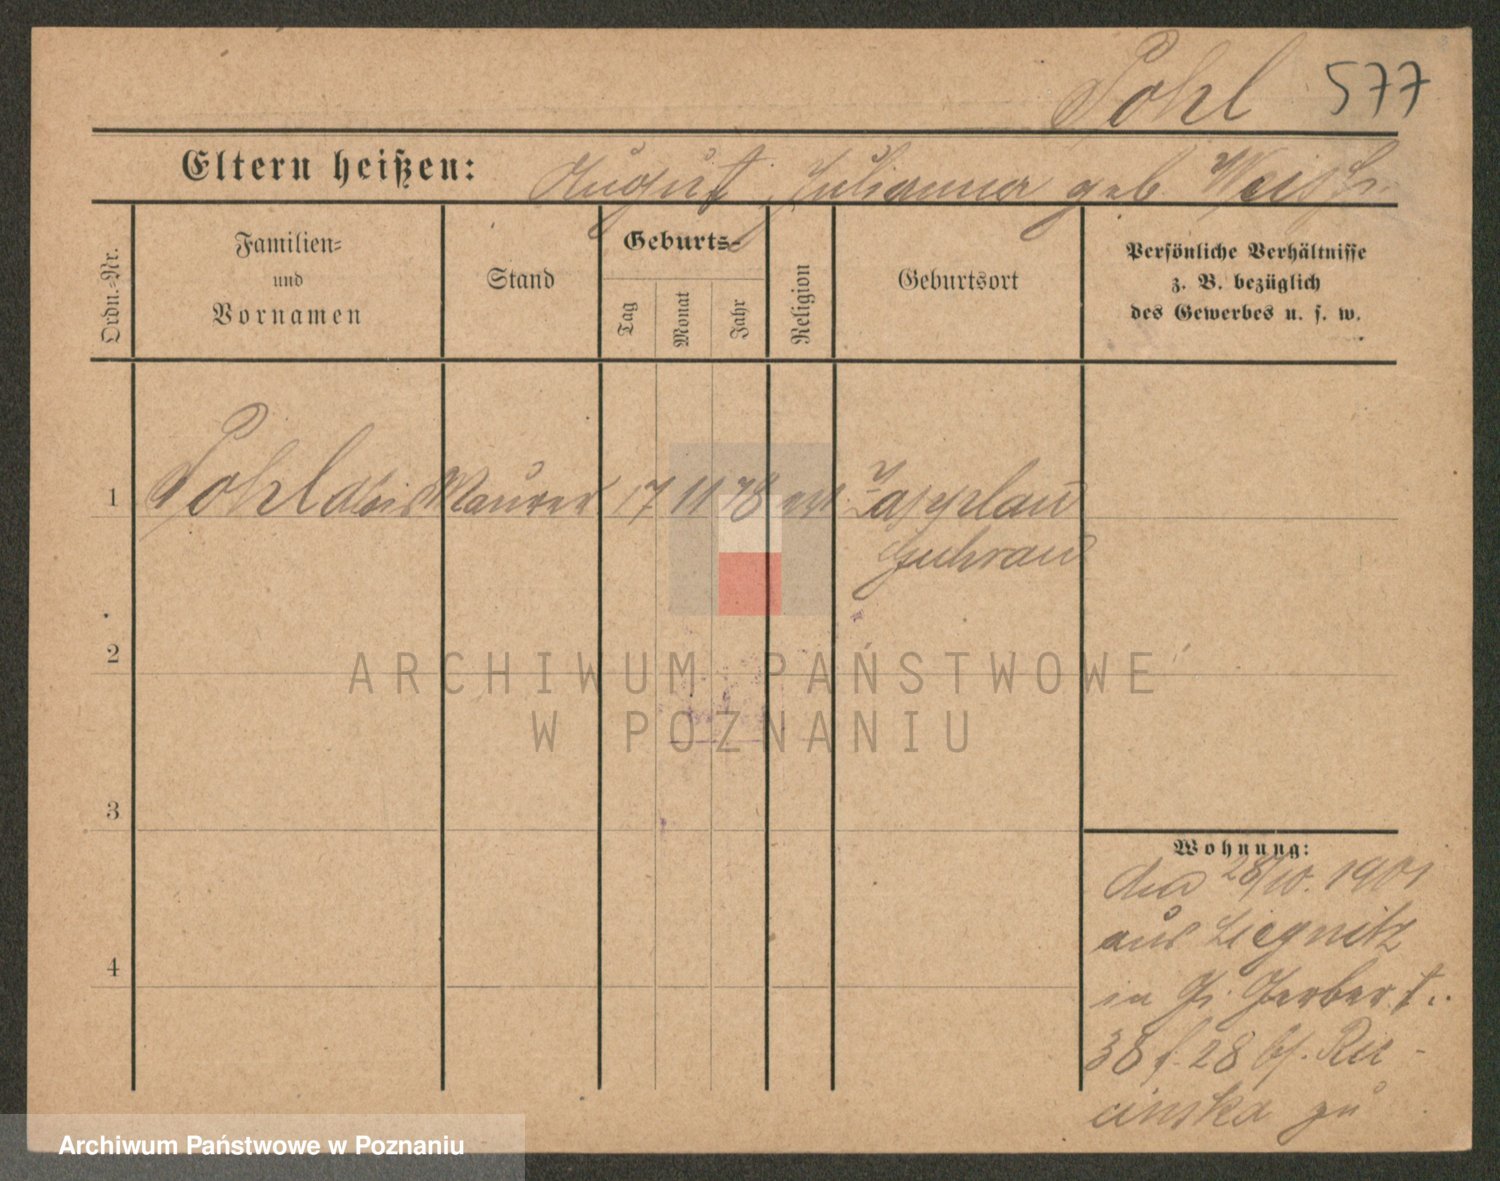 Pohl 577
Eltern heißen: August, Julianna geb. Weiß
Ordn.-Nr.
Familien-
und
Vornamen
Stand
Geburts-
Tag
Monat
Jahr
Religion
Geburtsort
Persönliche Verhältnisse
z. B. bezüglich
des Gewerbes u. s. w.
1 Pohl Alois Maurer 17 11 78
Guhrau
2
3
4
ARCHIWUM PAŃSTWOWE
W POZNANIU
Wohnung:
den 28/10. 1901
aus Liegnitz
in Gerberst.
38 b. 28 bf. Ru-
cinska zu
Archiwum Państwowe w Poznaniu